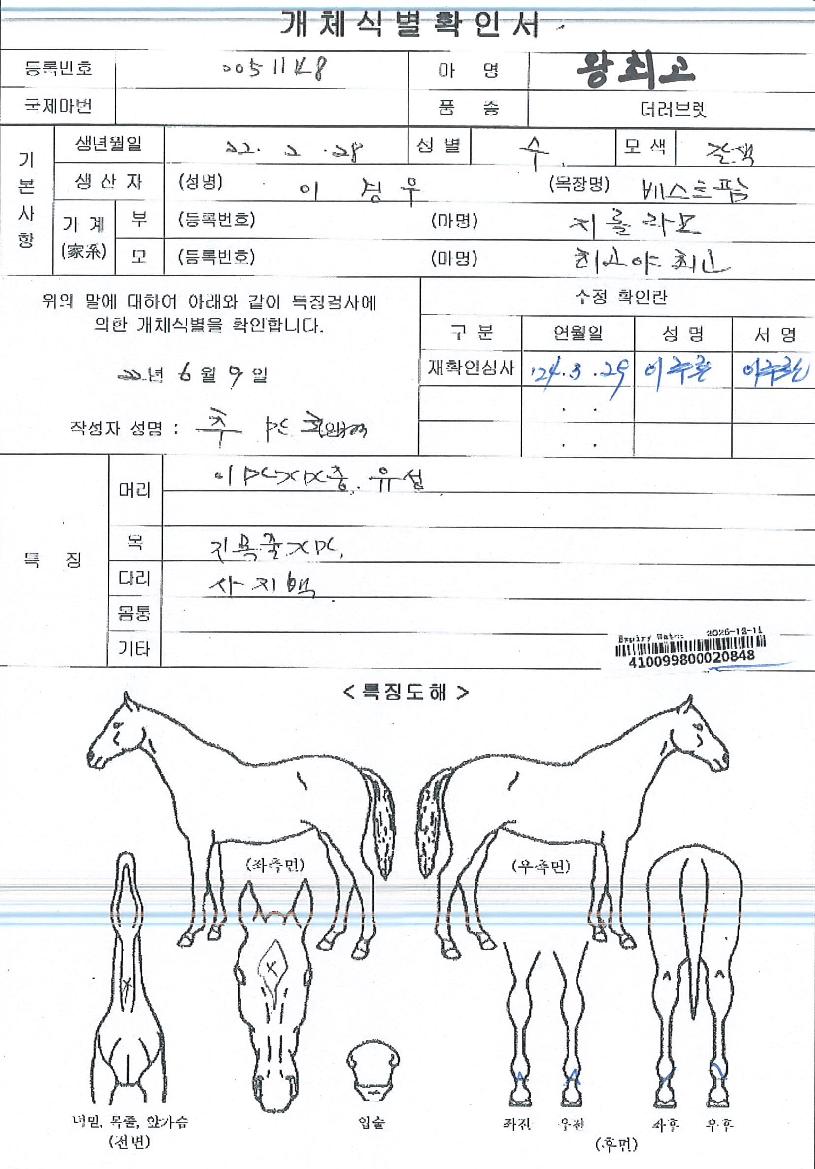 개체식별확인서
등록번호 0051148 마 명 왕최고
국제마번 품 종 더러브렛
기본사항
생년월일 22. 2. 28 성별 수 모색 갈색
생산자 (성명) 이 정 우 (목장명) 베스트팜
가계(家系) 부 (등록번호) (마명) 지롤라모
모 (등록번호) (마명) 최고야최고
위의 말에 대하여 아래와 같이 특징검사에
의한 개체식별을 확인합니다.
22년 6월 9일
작성자 성명 :
수정 확인란
구 분 연월일 성 명 서 명
재확인심사 '24.3.29
. .
. .
특 징
머리 유성
목
다리 사지백
몸통
기타
Expiry Date: 2026-12-11
410099800020848
< 특징도해 >
(좌측면) (우측면)
턱밑, 목줄, 앞가슴 입술 좌전 우전 좌후 우후
(전변) (후면)